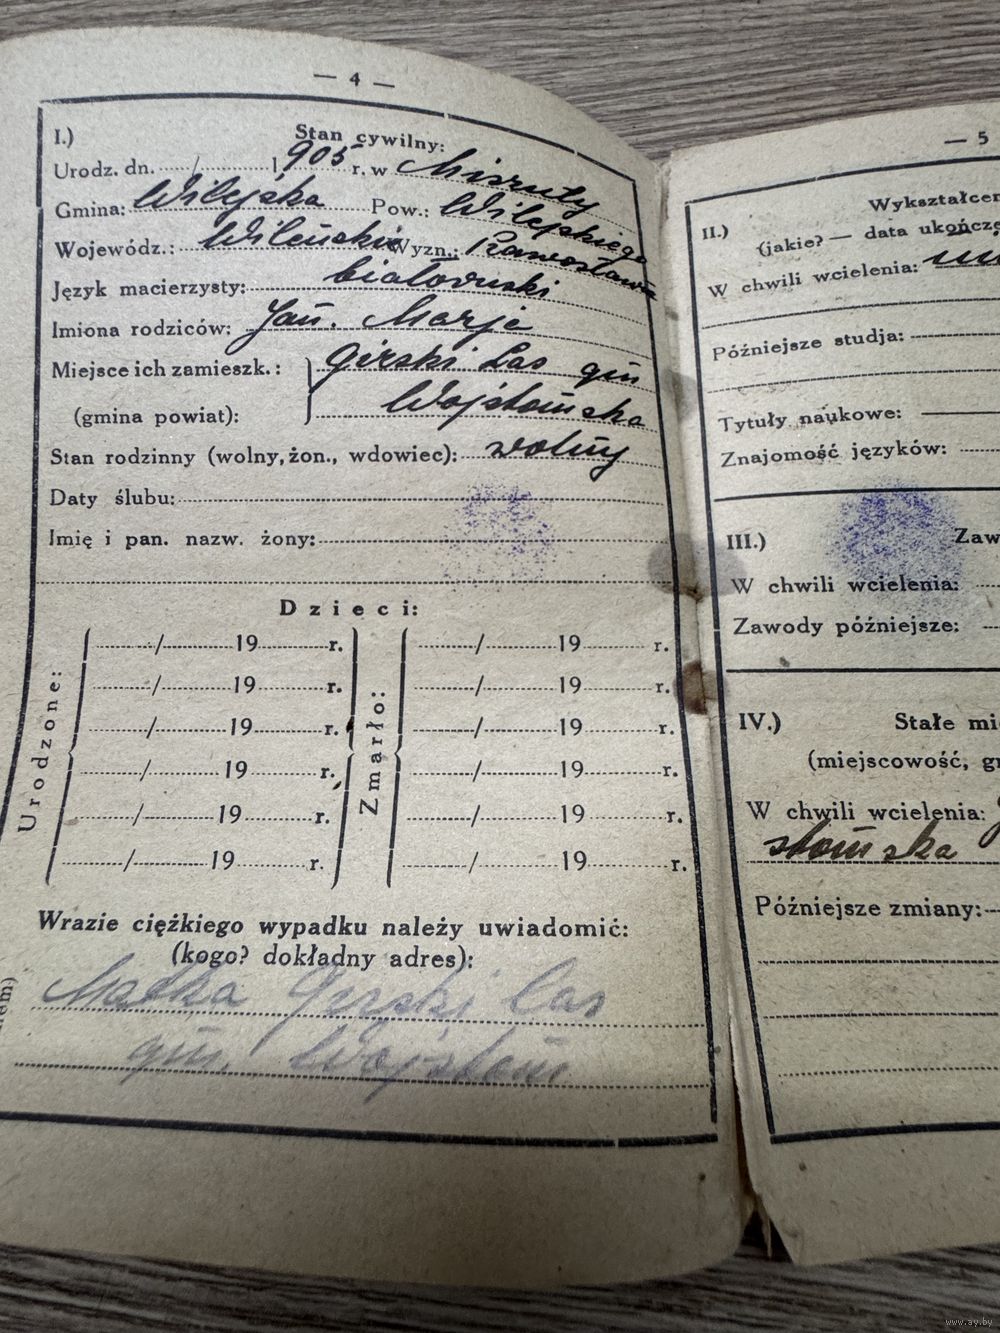 — 4 —
I.) Stan cywilny:
Urodz. dn. / 1905 r. w Misruty
Gmina: Wilejska Pow.: Wilejskiego
Wojewódz.: Wileńskie Wyzn.: Prawosławne
Język macierzysty: białoruski
Imiona rodziców: Jan. Marja
Miejsce ich zamieszk.: Girski Las gm
(gmina powiat): Wojstomska
Stan rodzinny (wolny, żon., wdowiec): wolny
Daty ślubu:
Imię i pan. nazw. żony:
Dzieci:
Urodzone:
/ 19 r.
/ 19 r.
/ 19 r.
/ 19 r.
/ 19 r.
/ 19 r.
Zmarło:
/ 19 r.
/ 19 r.
/ 19 r.
/ 19 r.
/ 19 r.
/ 19 r.
Wrazie ciężkiego wypadku należy uwiadomić:
(kogo? dokładny adres):
Matka Girski Las
gm. Wojstom
— 5
II.) Wykształcen
(jakie? — data ukończe
W chwili wcielenia:
Późniejsze studja:
Tytuły naukowe:
Znajomość języków:
III.) Zaw
W chwili wcielenia:
Zawody późniejsze:
IV.) Stałe mi
(miejscowość, g
W chwili wcielenia:
stomska
Późniejsze zmiany:
www.ay.by